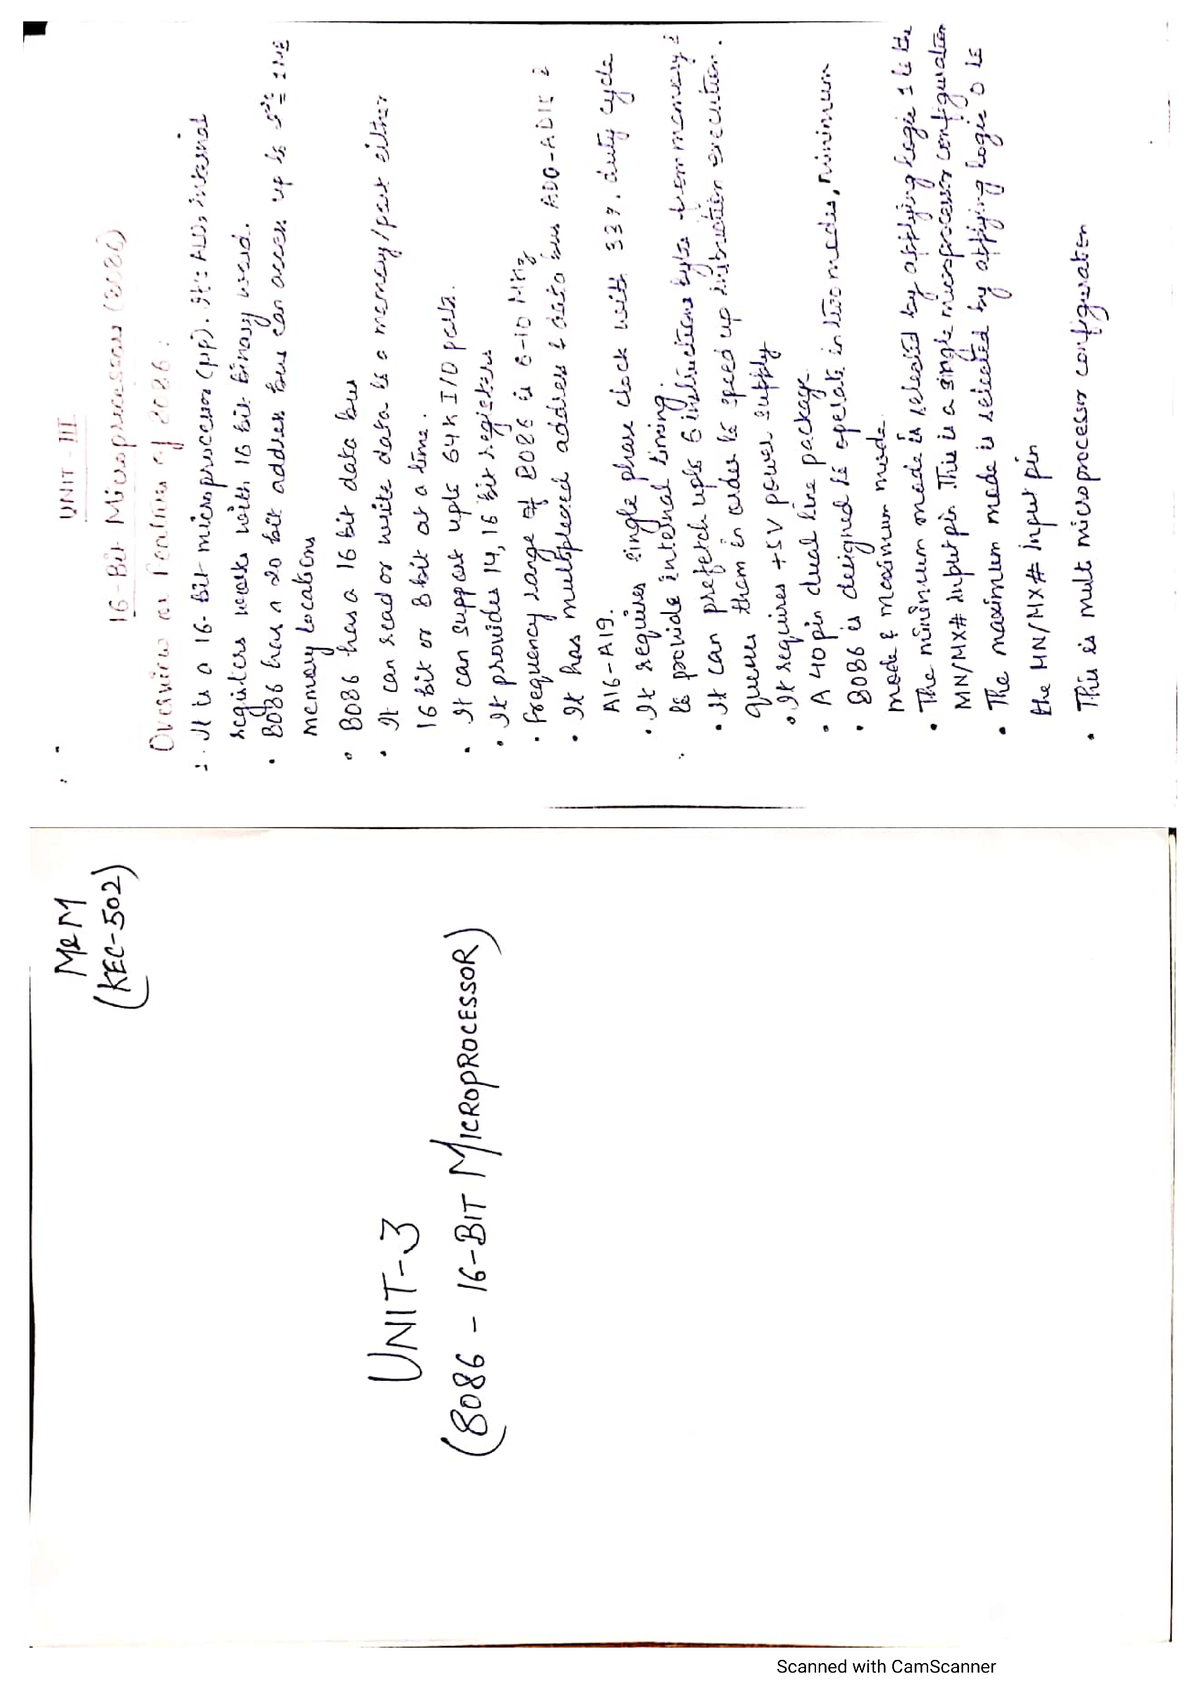 M&M
(KEC-502)
UNIT-3
(8086 - 16-BIT MICROPROCESSOR)
UNIT-III
16-Bit Microprocessor (8086)
Overview or Features of 8086:
It is a 16-bit microprocessor (μp). It's ALU, internal
registers works with 16 bit binary word.
• 8086 has a 20 bit address bus can access up to 2^20 = 1 MB
memory locations
• 8086 has a 16 bit data bus
• It can read or write data to a memory/port either
16 bit or 8 bit at a time.
• It can support upto 64K I/O ports.
• It provides 14, 16 bit registers
• Frequency range of 8086 is 6-10 MHz
• It has multiplexed address & data bus AD0-AD15 &
A16-A19.
• It requires single phase clock with 33% duty cycle
to provide internal timing.
• It can prefetch upto 6 instructions bytes from memory &
queues them in order to speed up instruction execution.
• It requires +5V power supply
• A 40 pin dual line package
• 8086 is designed to operate in two modes, minimum
mode & maximum mode.
• The minimum mode is selected by applying logic 1 to the
MN/MX# input pin. This is a single microprocessor configuration
• The maximum mode is selected by applying logic 0 to
the MN/MX# input pin
• This is mult microprocessor configuration
Scanned with CamScanner